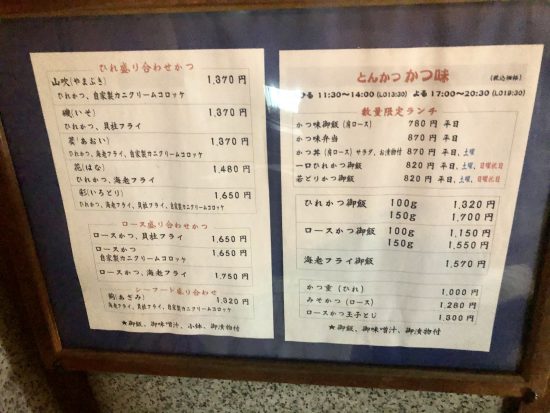 ひれ盛り合わせかつ
山吹(やまぶき) 1,370円
ひれかつ、自家製カニクリームコロッケ
磯(いそ) 1,370円
ひれかつ、貝柱フライ
葵(あおい) 1,370円
ひれかつ、海老フライ、自家製カニクリームコロッケ
花(はな) 1,480円
ひれかつ、海老フライ
彩(いろとり) 1,650円
ひれかつ、海老フライ、貝柱フライ、自家製カニクリームコロッケ
ロース盛り合わせかつ
ロースかつ、貝柱フライ 1,650円
ロースかつ 1,650円
自家製カニクリームコロッケ
ロースかつ、海老フライ 1,750円
シーフード盛り合わせ
(あさみ) 1,320円
海老フライ、貝柱フライ、自家製カニクリームコロッケ
★御飯、御味噌汁、小鉢、御漬物付
とんかつ かつ味 (税込価格)
ひる 11:30~14:00 (LO13:30) よる 17:00~20:30 (LO19:30)
数量限定ランチ
かつ味御飯(肩ロース) 780円 平日
かつ味弁当 870円 平日
かつ丼(肩ロース)サラダ、お漬物付 870円 平日、土曜
一口ひれかつ御飯 820円 平日、土曜、日曜祝日
若どりかつ御飯 820円 平日、土曜、日曜祝日
ひれかつ御飯 100g 1,320円
150g 1,700円
ロースかつ御飯 100g 1,150円
150g 1,550円
海老フライ御飯 1,570円
かつ重(ひれ) 1,000円
みそかつ(ロース) 1,280円
ロースかつ玉子とじ 1,300円
★御飯、御味噌汁、御漬物付